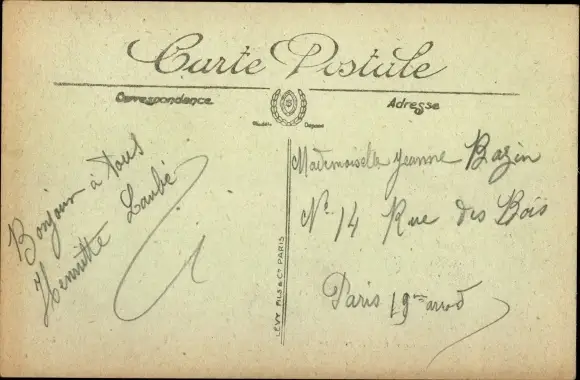 Carte Postale
Correspondance
Adresse
Modèle Déposé
Bonjour à tous
Henriette Laubé
LÉVY FILS & Cie PARIS
Mademoiselle Jeanne Bazin
No 14 Rue des Bois
Paris 19me arrd